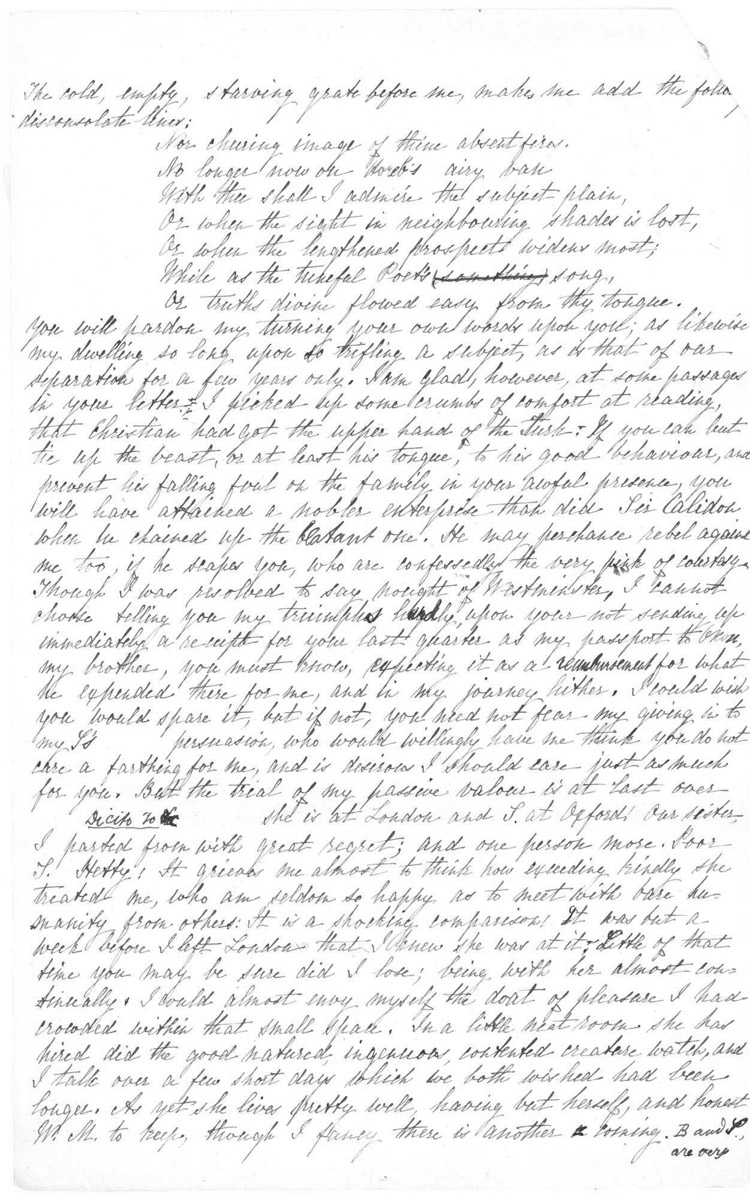 The cold, empty, starving grate before me, makes me add the follo
disconsolate lines:
Nor cheering image of thine absent fires.
No longer now on Horeb's airy van
With thee shall I admire the subject plain,
Or when the sight in neighbouring shades is lost,
Or when the lengthened prospects widens most;
While as the tuneful Poet's (something) song,
Or truths divine flowed easy from thy tongue.
You will pardon my turning your own words upon you; as likewise
my dwelling so long upon so trifling a subject, as is that of our
separation for a few years only. I am glad, however, at some passages
in your letter: I picked up some crumbs of comfort at reading,
that Christian had got the upper hand of the Turk: If you can but
tie up the beast, or at least his tongue, to his good behaviour, and
prevent his falling foul on the family in your awful presence, you
will have attained a nobler enterprise than did Sir Calidon
when he chained up the Blatant one. He may perchance rebel against
me too, if he scapes you, who are confessedly the very pink of courtesy.
Though I was resolved to say nought of Westminster, I cannot
choose telling you my triumphs upon your not sending up
immediately a receipt for your last quarter as my passport to
my brother, you must know, expecting it as a reimbursement for what
he expended there for me, and in my journey hither. I could wish
you would spare it, but if not, you need not fear my giving in to
my S's persuasion, who would willingly have me think you do not
care a farthing for me, and is desirous I should care just as much
for you. But the trial of my passive valour is at last over
she is at London and S. at Oxford! Our sister
I parted from with great regret; and one person more. Poor
S. Hetty! It grieves me almost to think how exceeding kindly she
treated me, who am seldom so happy as to meet with bare hu-
manity from others: It is a shocking comparison! It was but a
week before I left London that I knew she was at it: Little of that
time you may be sure did I lose; being with her almost con-
tinually. I could almost envy myself the doat of pleasure I had
crowded within that small space. In a little neat room she has
hired did the good natured, ingenuous, contented creature watch, and
I talk over a few short days which we both wished had been
longer. As yet she lives pretty well, having but herself, and honest
W. M. to keep, though I fancy there is another coming. B and S.,
are very